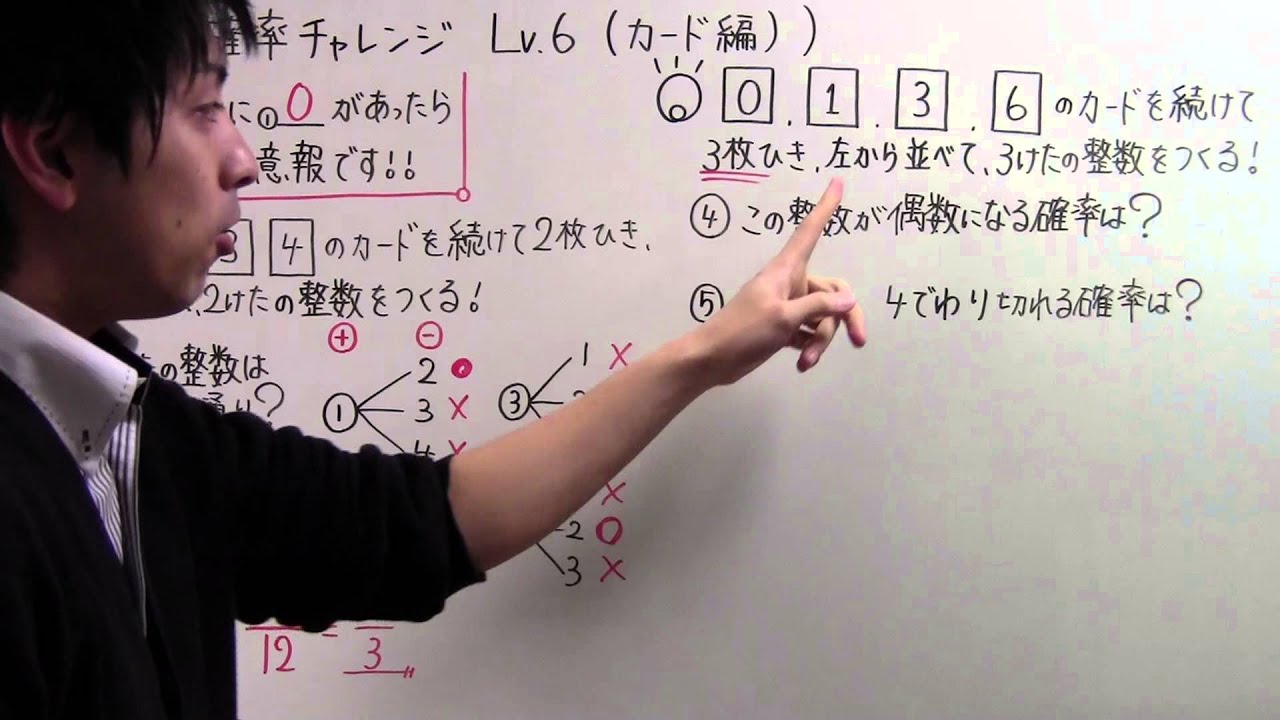 率チャレンジ Lv.6 (カード編))
に①0があったら
意報です!!
3 4 のカードを続けて2枚ひき、
、2けたの整数をつくる!
の整数は
?
⊕ ⊖
① 2 ○
3 ×
4 ×
③ 1 ×
2
×
2 ○
3 ×
12 = 3
0 . 1 . 3 . 6 のカードを続けて
3枚ひき、左から並べて、3けたの整数をつくる!
④ この整数が偶数になる確率は?
⑤ 4でわり切れる確率は?